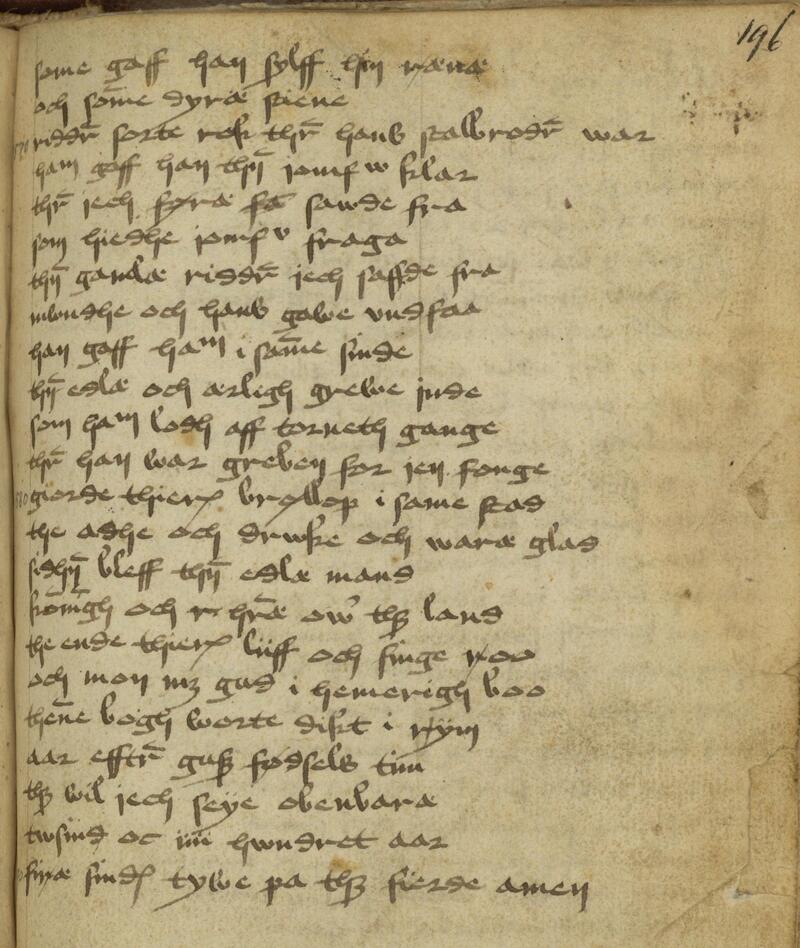 196
some gaff han sylff hin rænæ
och som̄e dyræ stene
riddr̄ sorte rok thr̄ hans stalbrodr̄ war
ham gaff han thn̄ iomfw klar
thr̄ jech føræ fā sawde fra
som hiedhe iomfv fraga
thn̄ gamlæ riddr̄ jech saffde fra
mwndhe och hans gawe vndfaa
han gaff ham i sam̄e sinde
thn̄ edlæ och ærligh grewe jnde
som ham lodh aff torneth gange
thr̄ han war greben for jen fonge
giorde thieræ brøllop i same stad
the adhe och drwke och waræ glad
sidhn̄ bleff thn̄ edlæ mand
kōnīgh och hr̄æ ow̄ thz land
the ende thieræ liiff och finge roo
och mon mz gud i hemerigh boo
then̄e bogh worte dikt i ryym
aar efftr̄ gudz fødsels tim
thz wil jech seye obenbaræ
twsind oc iiii hwndret aar
firæ sindæ tywe pa thz fierde amen